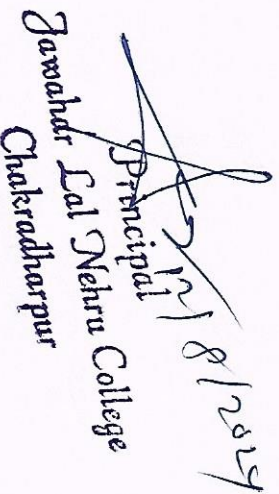 12/8/2024
Principal
Jawahar Lal Nehru College
Chakradharpur